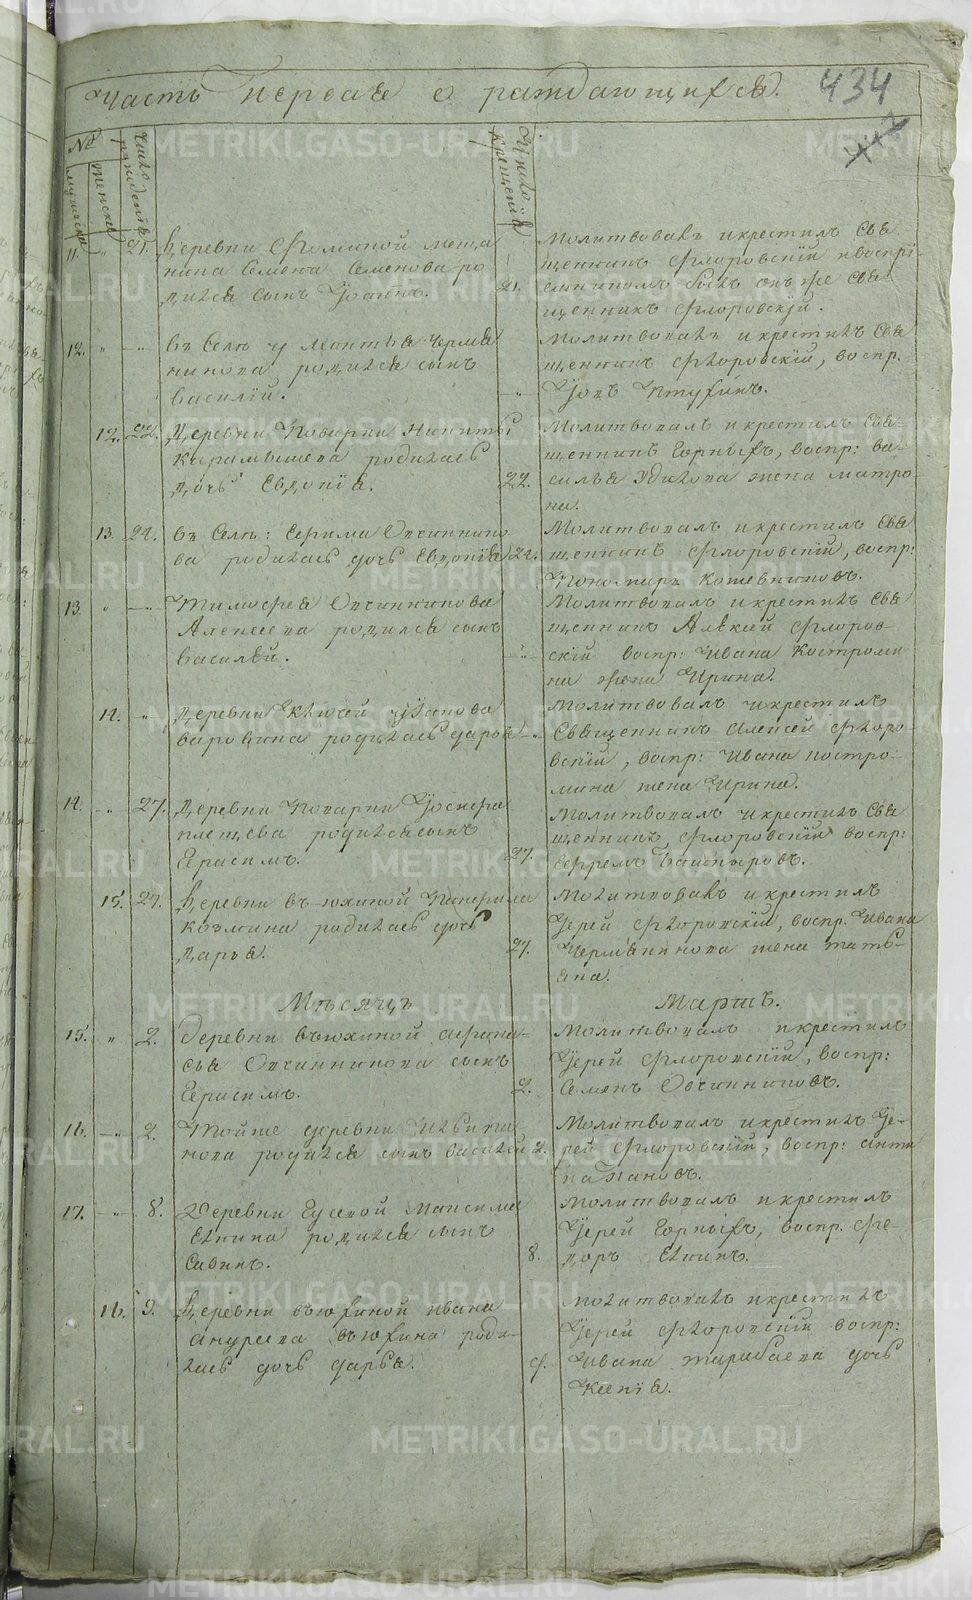 Часть первая о раждающихся. 434
№
мужеска
женска
Число рождения
Число крещения
11. " 21. Деревни Фоминой меща
нина Семена Семенова ро
дился сынъ Iосифъ.
21. Молитвовалъ и крестилъ Свя
щенникъ Флоровскiй и воспрi
емникомъ былъ онъ же Свя
щенникъ Флоровскiй.
12. " " Въ Селѣ у Демя
нинова родился сынъ
Василiй.
" Молитвовалъ и крестилъ Свя
щенникъ Флоровскiй, воспр.
Iовъ Птухинъ.
12. 22. Деревни Поварни Никиты
Карамышева родилась
дочь Евдокiя.
22. Молитвовалъ и крестилъ Свя-
щенникъ Горныхъ, воспр: Ва-
силья Удилова жена Матро
на.
13. 24. Въ Селѣ: Ефима Овчиннико
ва родилась дочь Евдокiя
24. Молитвовалъ и крестилъ Свя
щенникъ Флоровскiй, воспр:
Пономарь Кожевниковъ.
13. " " Тимофея Овчинникова
Алексеева родился сынъ
Василей.
" Молитвовалъ и крестилъ Свя
щенникъ Алексей Флоров-
скiй воспр: Ивана Костроми
на жена Ирина.
14. " Деревни Ключей
родилась Дарья
" Молитвовалъ и крестилъ
Священникъ Алексей Флоро-
вскiй, воспр: Ивана Костро-
мина жена Ирина.
14. " 27. Деревни Поварни Iосифа
Плещева родился сынъ
Герасимъ.
27. Молитвовалъ и крестилъ Свя
щенникъ Флоровскiй воспр:
Ефремъ
15. 27. Деревни Вьюхиной Панфила
Козмина родилась дочь
Дарья.
27. Молитвовалъ и крестилъ
Iерей Флоровскiй, воспр. Ивана
Чермянинова жена Тать-
яна.
Мѣсяцъ Мартъ.
15. " 2. Деревни Вьюхиной Афона-
сья Овчинникова сынъ
Герасимъ.
2. Молитвовалъ и крестилъ
Iерей Флоровскiй, воспр:
Семенъ Овчинниковъ.
16. " 2. Той же деревни
родился сынъ Василей
2. Молитвовалъ и крестилъ Iе-
рей Флоровскiй, воспр: Анти
па Пановъ.
17. " 8. Деревни Гусевой Максима
Елкина родился сынъ
Савинъ.
8. Молитвовалъ и крестилъ
Iерей Горныхъ, воспр. Фе-
доръ Елкинъ.
16. 9. Деревни Вьюхиной Ивана
Андреева Вьюхина роди-
лась дочь Дарья.
9. Молитвовалъ и крестилъ
Iерей Флоровскiй воспр:
Ивана дочь
Ксенiя.
METRIKI.GASO-URAL.RU